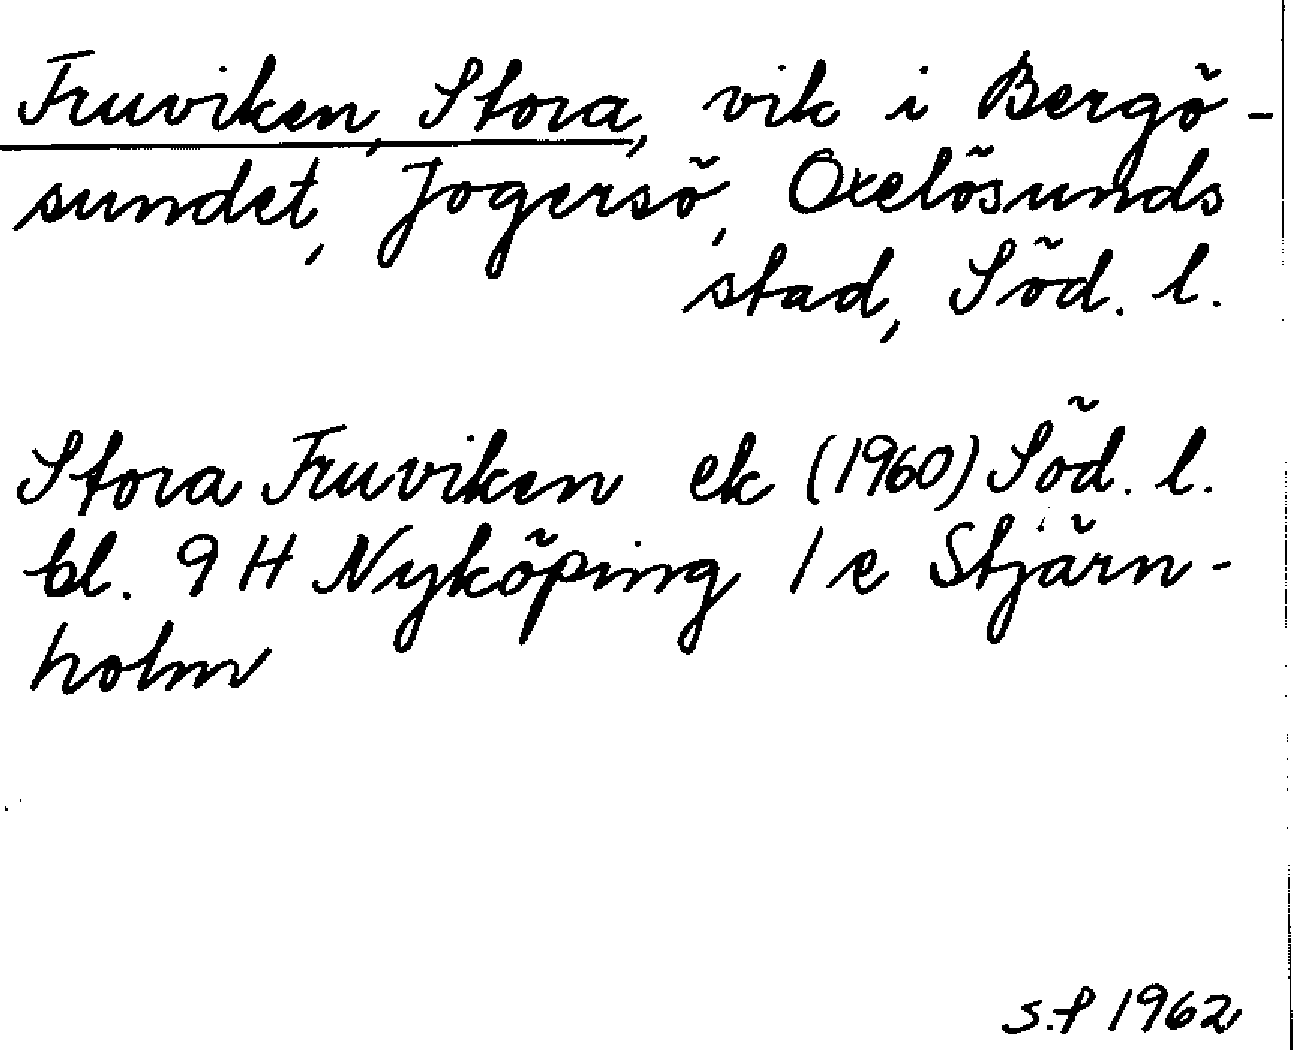 Fruviken, Stora, vik i Bergö-
sundet, Jogersö, Oxelösunds
stad, Söd. l.
Stora Fruviken ek (1960) Söd. l.
bl. 9 H Nyköping 1 e Stjärn-
holm
s.f 1962